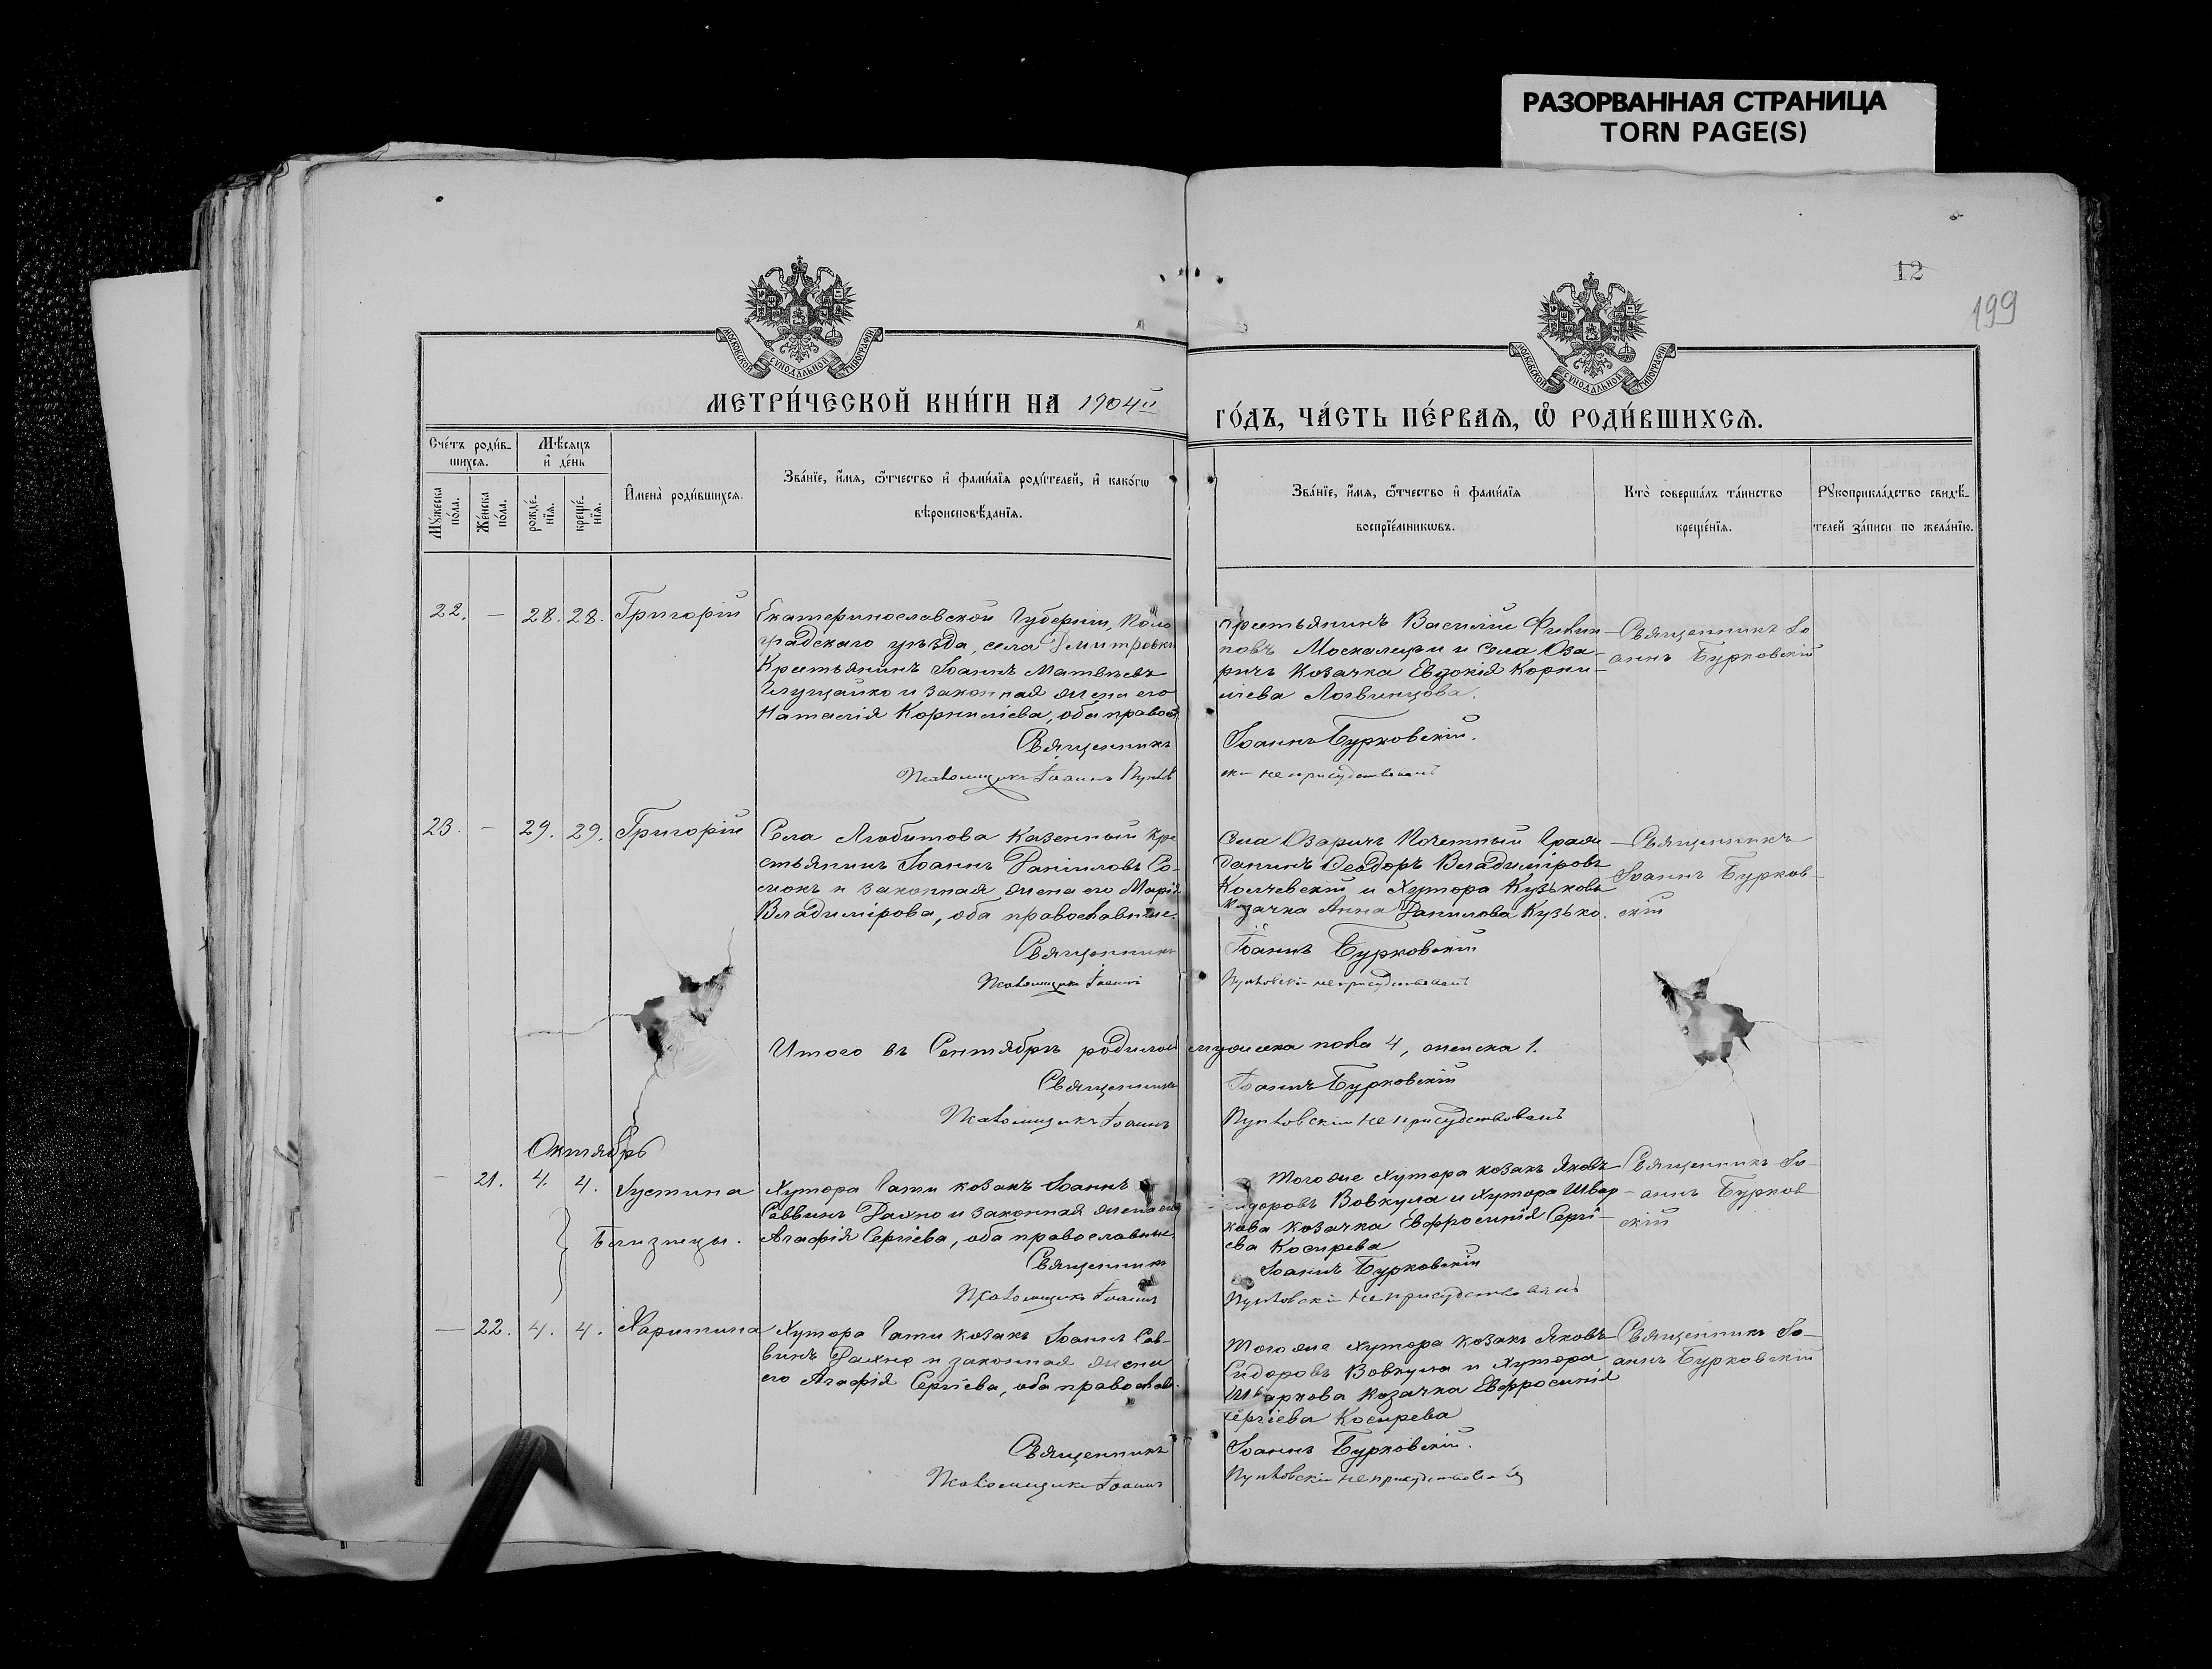 РАЗОРВАННАЯ СТРАНИЦА
TORN PAGE(S)
12
199
МОСКОВСКОЙ СУНОДАЛЬНОЙ ТИПОГРАФІИ
МОСКОВСКОЙ СУНОДАЛЬНОЙ ТИПОГРАФІИ
МЕТРИ́ЧЕСКОЙ КНИ́ГИ НА 1904й
ГО́ДЪ, ЧА́СТЬ ПЕ́РВАѦ, Ѡ РОДИ́ВШИХСѦ.
Сче́тъ роди́в-
шихсѧ.
Мѣ́сяцъ
и҆ де́нь
Мꙋ́жеска по́ла.
Же́нска по́ла.
рожде́-нїѧ.
креще́-нїѧ.
И҆мена̀ роди́вшихсѧ.
Зва́нїе, и҆́мѧ, ѻ҆́тчество и҆ фами́лїѧ роди́телей, и҆ како́гѡ
вѣроисповѣ́данїѧ.
Зва́нїе, и҆́мѧ, ѻ҆́тчество и҆ фами́лїѧ
воспрїе́мникѡвъ.
Кто̀ соверша́лъ та́инство
креще́нїѧ.
Рꙋкоприкла́дство свидѣ́-
телей за́писи по жела́нїю.
22. — 28. 28. Григорій
Екатеринославской Губерніи, Ново
градскаго уѣзда, села Дмитровки
Крестьянинъ Іоаннъ Матвѣевъ
и законная жена его
Наталія Корниліева, оба правос
Священникъ
Псаломщикъ Іоаннъ Пучков
Крестьянинъ Василій Филип
повъ Москалецъ и села Оза-
ричъ Козачка Евдокія Корни-
ліева Логвинцова.
Іоаннъ Бурковскій.
скій не присудствовалъ
Священникъ Іо
аннъ Бурковскій
23. — 29. 29. Григорій
Села Любитова Казенный Кре
стьянинъ Іоаннъ Даніиловъ Со-
мокъ и законная жена его Марія
Владимірова, оба православные.
Священникъ
Псаломщикъ Іоаннъ
Села Озаричъ Почетный Граж
данинъ Ѳеодоръ Владиміровъ
Колчевскій и Хутора Кузькова
Козачка Анна Данилова Кузько.
Іоаннъ Бурковскій
Пучковскій не присудствовалъ
Священникъ
Іоаннъ Бурков-
скій
Итого въ Сентябрѣ родилось мужеска пола 4, женска 1.
Священникъ Іоаннъ Бурковскій
Псаломщикъ Іоаннъ Пучковскій не присудствовалъ
Октябрь
— 21. 4. 4. Іустина
Близнецы.
Хутора Гати козакъ Іоаннъ
Саввинъ Дахно и законная жена его
Агафія Сергіева, оба православные.
Священникъ
Псаломщикъ Іоаннъ
Того же Хутора козакъ Яковъ
Сидоровъ Вовкула и Хутора Швар-
кова козачка Евфросинія Сергі-
ева Косирева
Іоаннъ Бурковскій
Пучковскій не присудствовалъ
Священникъ Іо-
аннъ Бурков
скій
— 22. 4. 4. Харитина
Хутора Гати козакъ Іоаннъ Сав-
винъ Дахно и законная жена
его Агафія Сергіева, оба православ.
Священникъ
Псаломщикъ Іоаннъ
Того же Хутора козакъ Яковъ
Сидоровъ Вовкула и Хутора
Шваркова козачка Евфросинія
Сергіева Косирева
Іоаннъ Бурковскій.
Пучковскій не присудствовалъ
Священникъ Іо-
аннъ Бурковскій